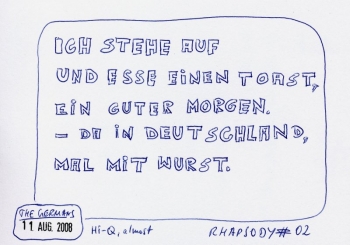 ICH STEHE AUF
UND ESSE EINEN TOAST,
EIN GUTER MORGEN.
– DA IN DEUTSCHLAND,
MAL MIT WURST.
THE GERMANS
11 AUG. 2008
Hi-Q, almost
RHAPSODY# 02